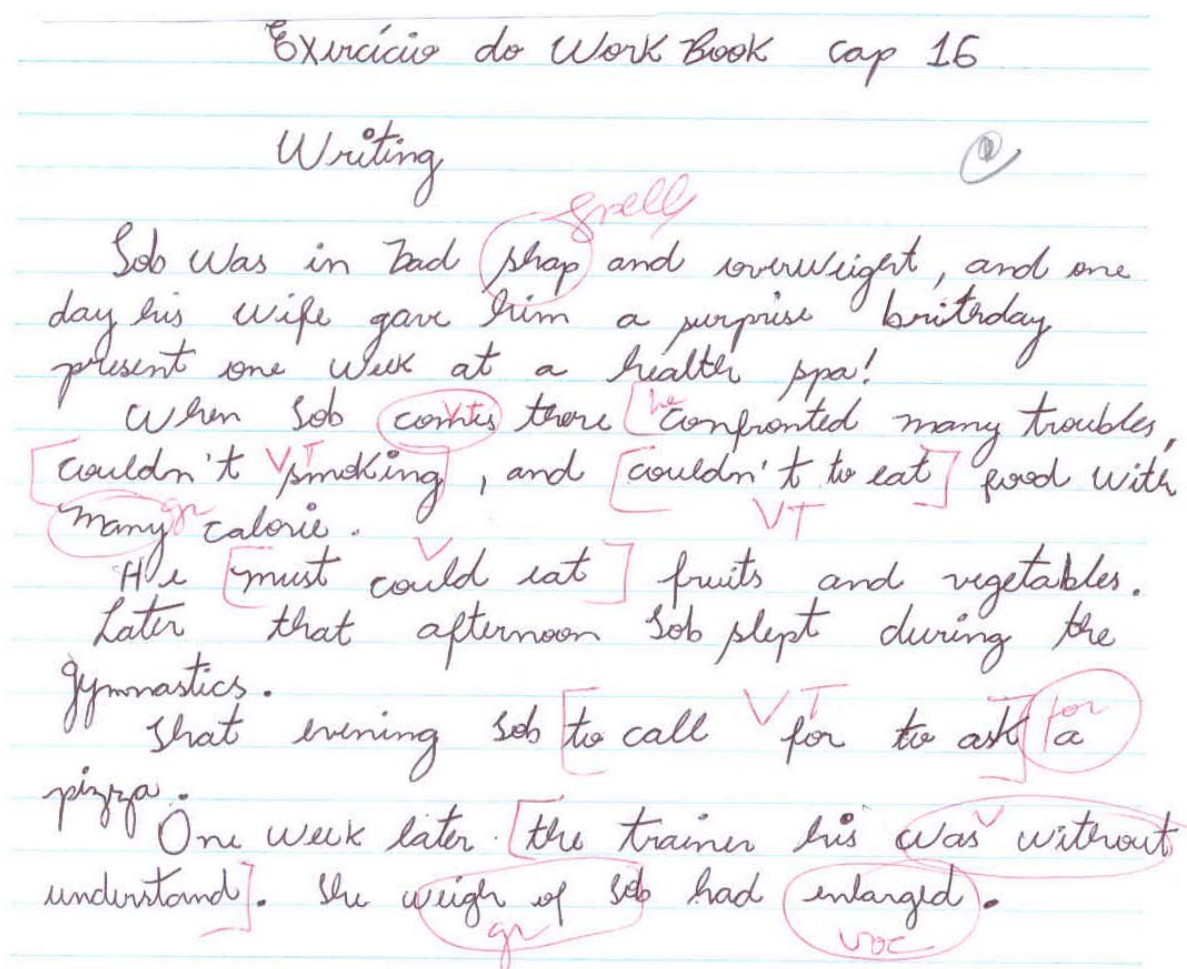 Exercício do Work Book cap 16
Writing
spell
Tob was in bad shap and overweight, and one
day his wife gave him a surprise brithday
present one week at a health spa!
When Tob comes VT there [he confronted many troubles,
[couldn't smoking] VT, and [couldn't to eat] food with
VT
many gr calorie.
V
He [must could eat] fruits and vegetables.
Later that afternoon Tob slept during the
gymnastics.
VT for
That evening Tob [to call for to ask] a
pizza.
One week later. [the trainer his was V without
understand]. The weigh of Tob had enlarged.
gr voc